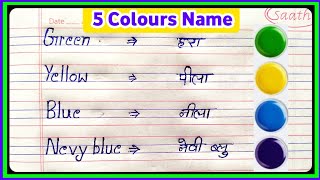 5 Colours Name
Saath
Date
Green ⇒ हरा
Yellow ⇒ पीला
Blue ⇒ नीला
Nevy blue ⇒ नेवी ब्लु